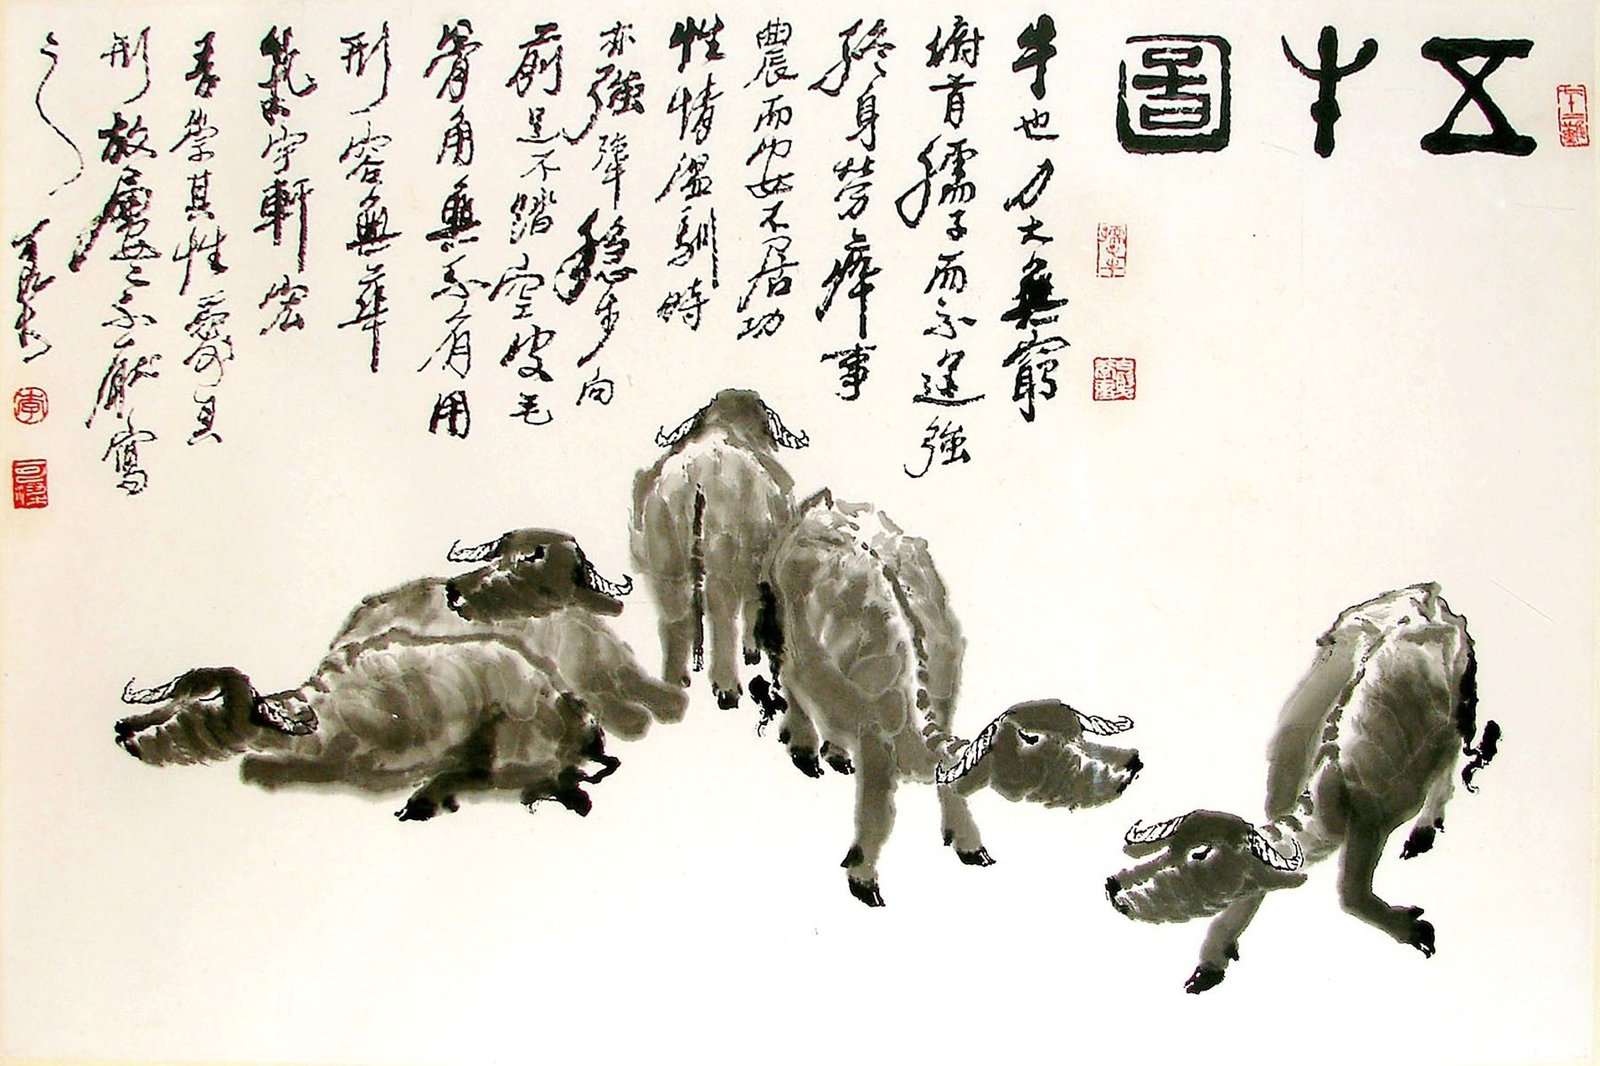 五牛圖
牛也力大無窮
俯首孺子而不逞強
終身勞瘁事
農而安不居功
性情溫馴時
亦強犟穩步向
前足不踏空皮毛
骨角無不有用
形容無華
氣宇軒宏
吾崇其性愛其
形故屢〻不厭寫
之
可染
李